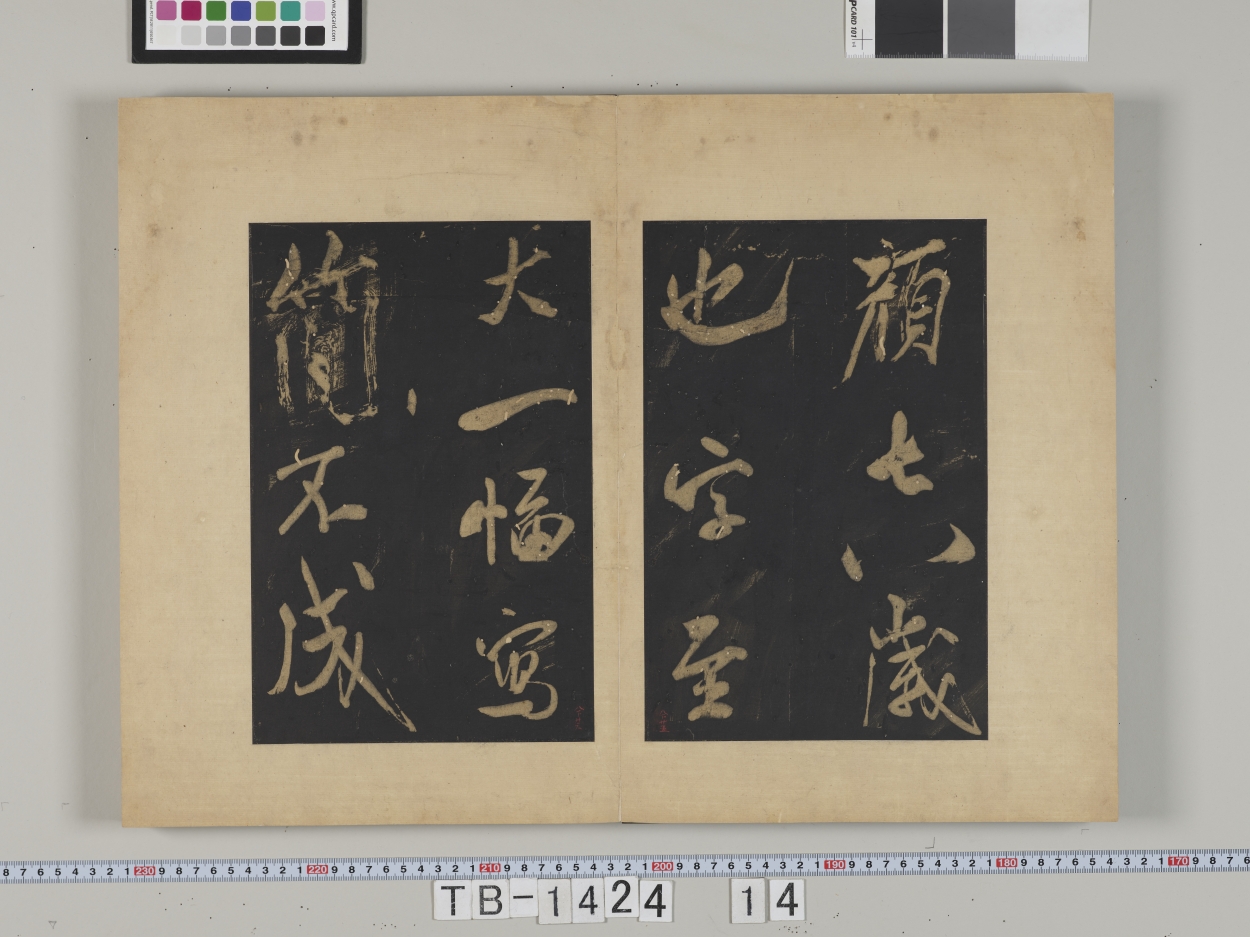 顏七八歲
也字至
大一幅寫
簡不成
TB-1424 14